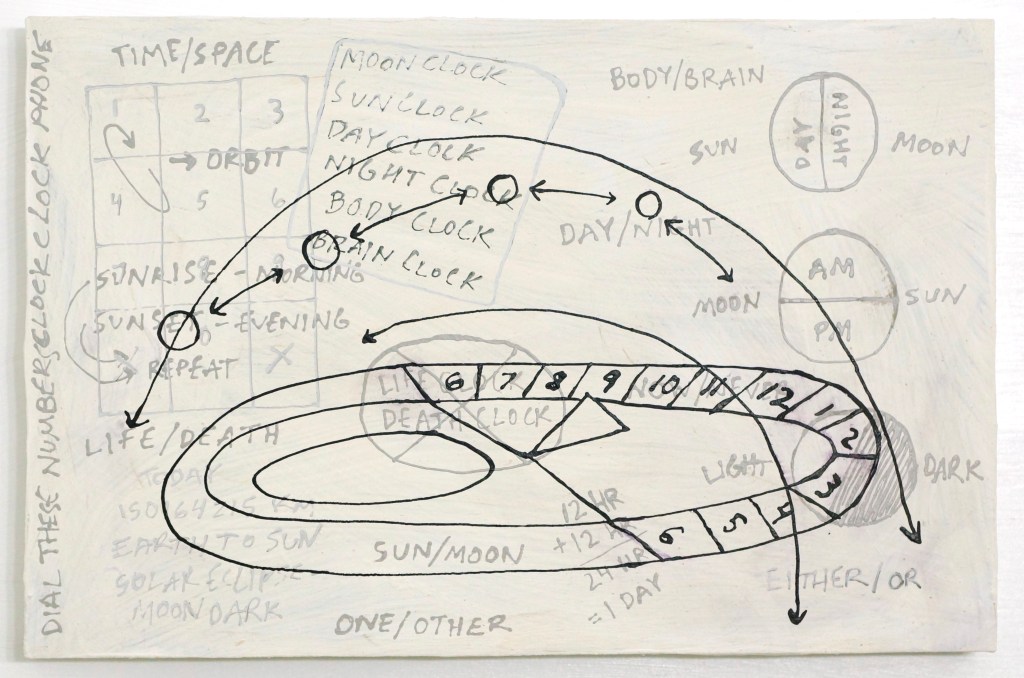 DIAL THESE NUMBERS CLOCK CLOCK PHONE
TIME/SPACE
1 2 3
→ ORBIT
4 5 6
SUNRISE - MORNING
SUNSET - EVENING
REPEAT
X
MOON CLOCK
SUN CLOCK
DAY CLOCK
NIGHT CLOCK
BODY CLOCK
BRAIN CLOCK
BODY/BRAIN
SUN
DAY
NIGHT
MOON
DAY/NIGHT
MOON
AM
PM
SUN
6 7 8 9 10 11 12 1 2 3 4 5 6
DEATH CLOCK
LIGHT
DARK
LIFE/DEATH
TODAY
KM
EARTH TO SUN
SOLAR ECLIPSE-
MOON DARK
SUN/MOON
12 HR
+12 HR
24 HR
=1 DAY
EITHER/OR
ONE/OTHER